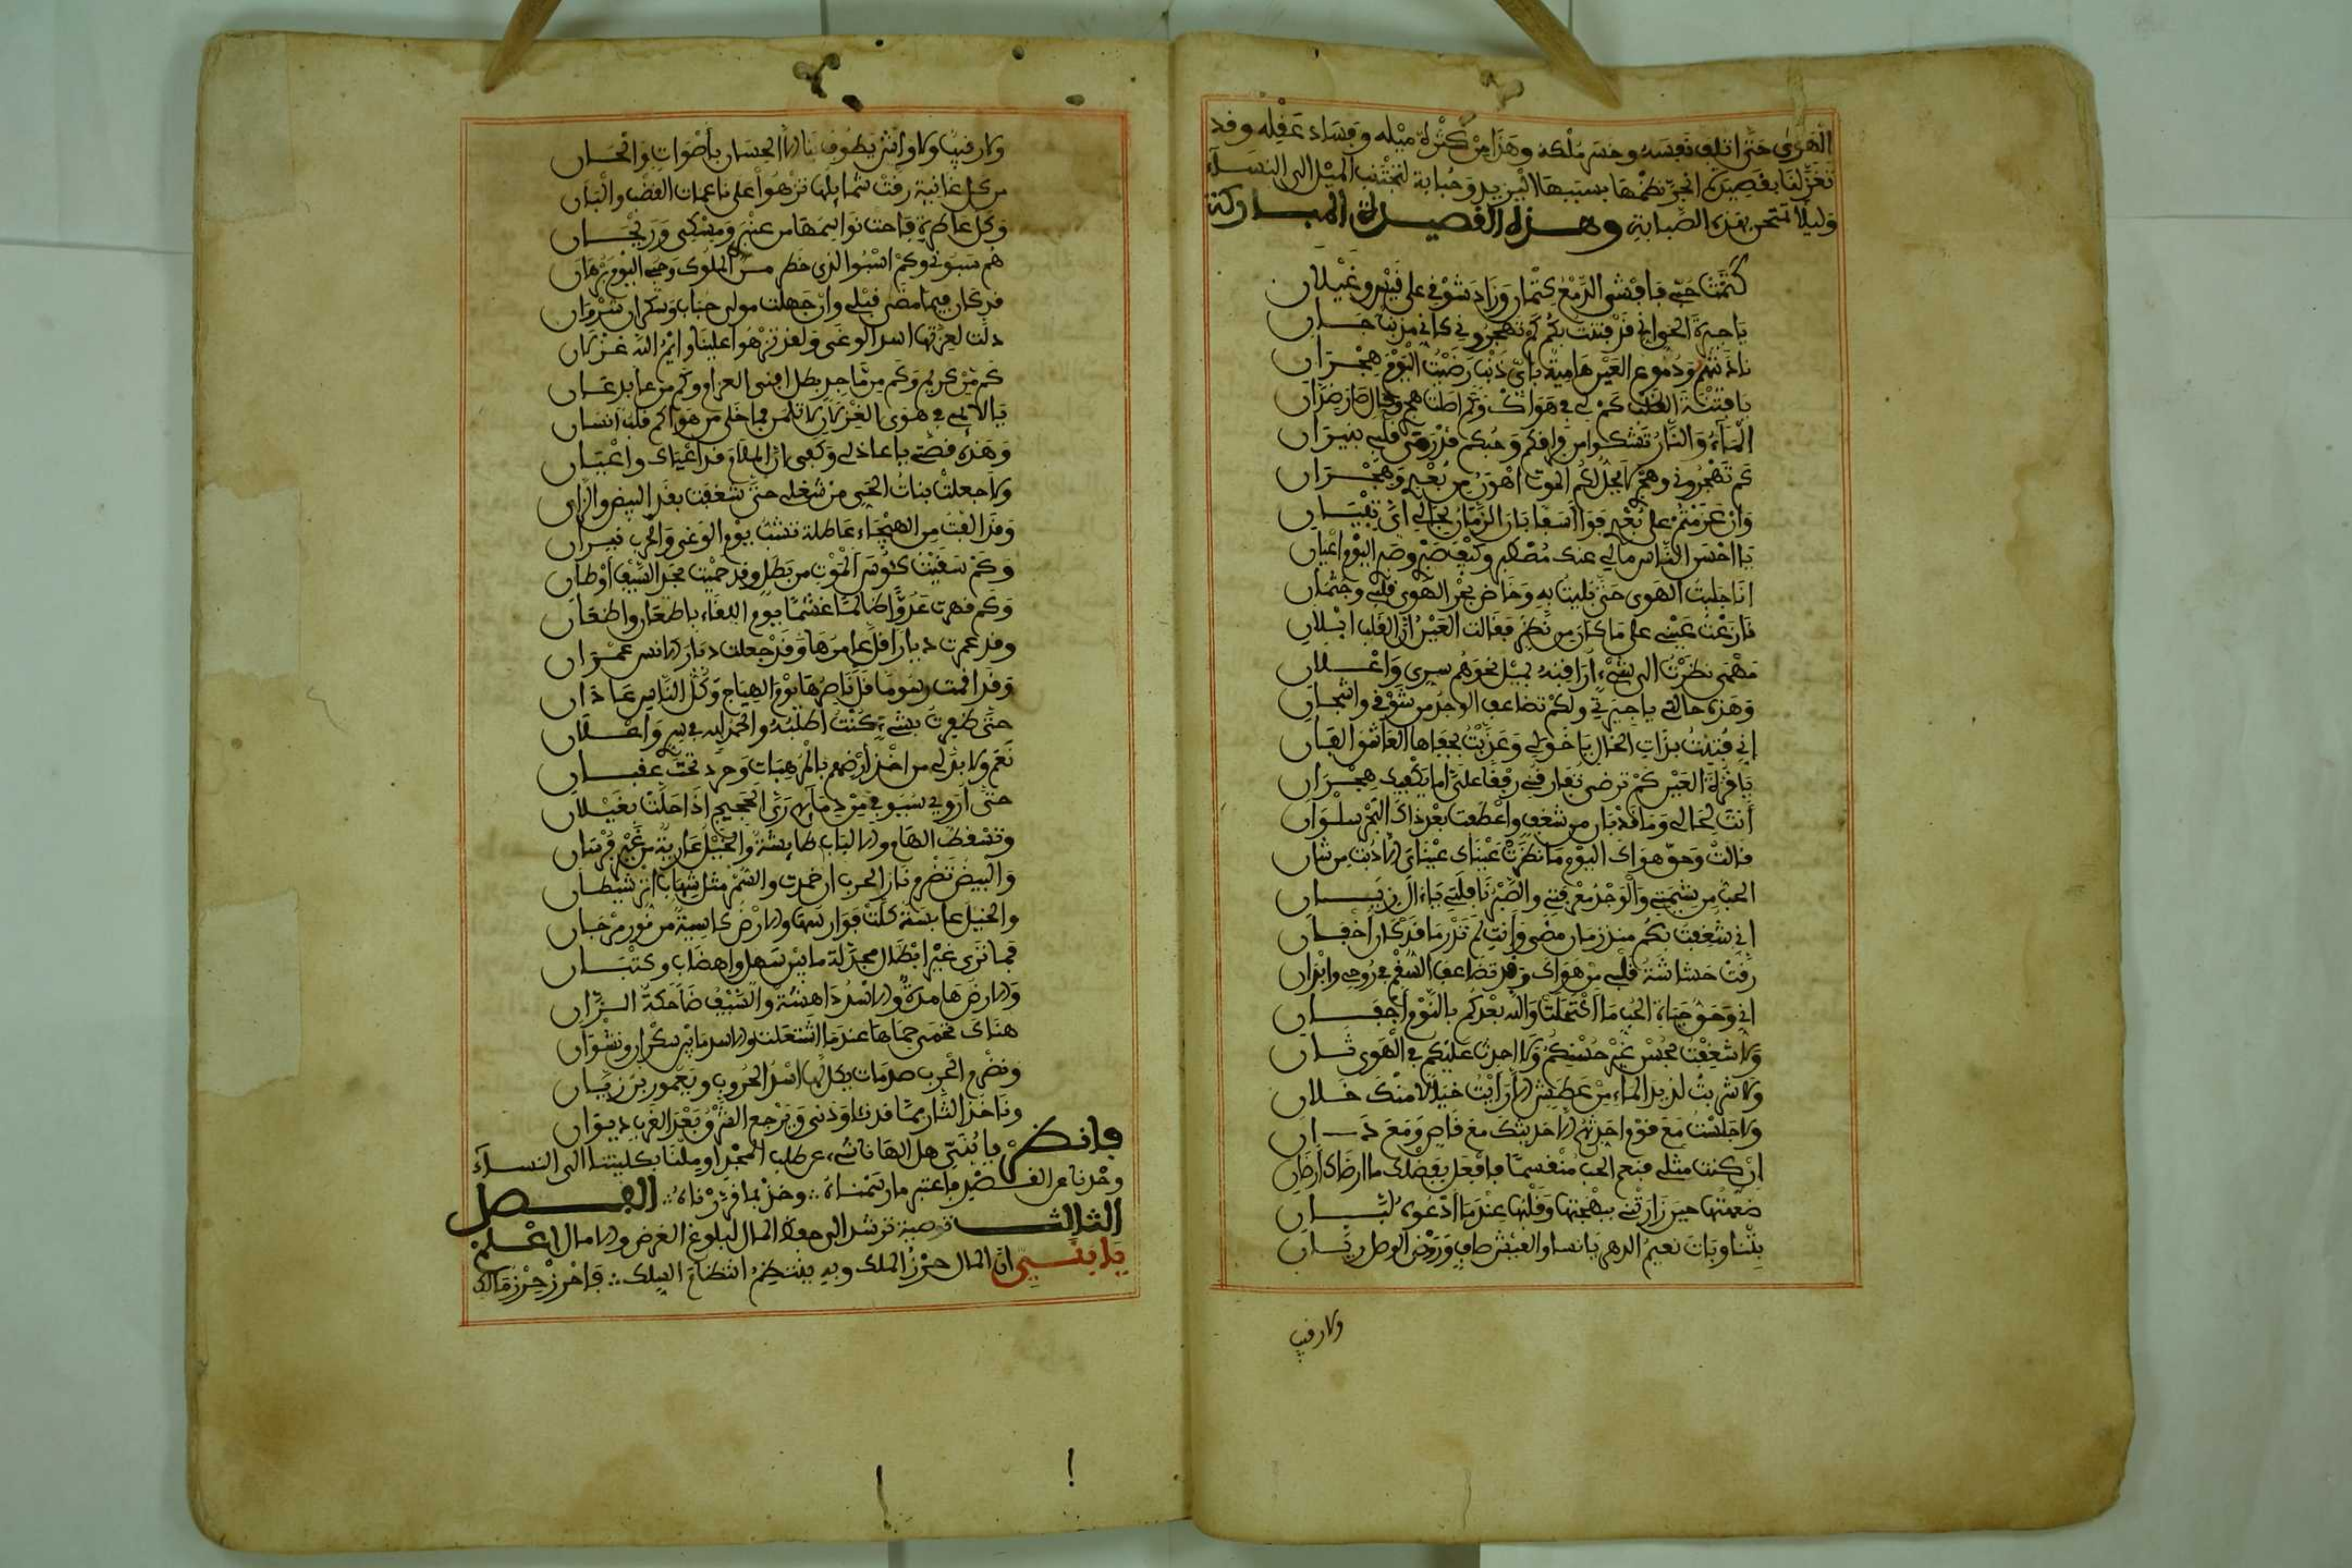 الهوى حتى اتلف نفسه وخسر ملكه وهذا من كثرة ميله وفساد عقله وقد
تغزلنا بقصيدة انجر نظمها بسببها اليزيد وحبابة لتجتنب الميل الى النساء
وليلا تمتحن بهذه الصبابة وهذه القصيدة المباركة
كتمت حبي فافشى الدمع كتمان وزاد شوقي على قيس وغيلان
يا جيرة الحي اني قد فتنت بكم كم تهجروني كاني مذنب جان
ناديتهم ودموع العين هامية باي ذنب رضيت اليوم هجران
يا فتنة القلب كم لي في هواك وكم اطلت هجري
الماء والنار تشكوا من فراقكم وحبكم قد رمى قلبي بنيران
كم تهجروني وهجري لا يحل لكم الموت اهون من بعد وهجران
وان عزمتم على بعدي فوا اسفا بان الزمان بحالي اي تبيان
يا احسن الناس ما لي عنك مصطبر وكيف صبر وصبر اليوم اعيان
انا جلبت الهوى حتى بليت به وخاض بحر الهوى قلبي وجثمان
نازعت عيني على ما كان من نظر فقالت العين ان القلب ابلان
مهمى نظرت الى شيء اراقبه يميل نحوهم سري واعلان
وهذه حالتي يا جيرتي ولكم تضاعف الوجد من شوقي واشجان
اني فتنت بذات الخال يا خولي وعذبت بجفاها العاشق الفان
يا قرة العين كم ترضى تعارفني رفقا علي اما يكفيك هجران
انت لحالي وما قد بان من شغف واعطفت بعد ذاك التيه سلوان
قالت وحق هواك اليوم ما نظرت عيناي عيناك الا ذبت من شان
الحب من شيمتي والوجد معرفتي والصبر نافلتي يا آل زيان
اني شغفت بكم منذ زمان مضى وانت لم تدر ما قد كان اخفان
رقت حشاشة قلبي من هواك وقد تضاعف السقم في روحي وابدان
اني وحق حياة الحب ما اكتحلت والله بعدكم بالنوم اجفان
ولا شغفت بحسن غير حسنكم ولا احدث عليكم في الهوى ثان
ولا شربت لذيذ الماء من عطش الا رايت خيالا منك خلان
ولا جلست مع قوم احدثهم الا حديثك مع قاص ومع دان
ان كنت مثلي فنعم الحب منقسما فافعل بفضلك ما ارضاك ارضان
ضممتها حين زارتني ببهجتها وقلتها عندما ادعوك لبان
بتنا وبات نعيم الدهر يانسنا والعيش صاف وروض الوصل ريان
ولا رقيب
ولا رقيب ولا واش يطوف بنا الا الحسان باصوات والحان
من كل غانية رقت شمايلها تزهوا على ناعمات الغض والبان
وكل عاطرة فاحت نواسمها من عنبر ومسك وريحان
هم سبوني وكم اسبوا الذي خطر من الملوك وحبي اليوم برهان
قد كان فيما مضى قبلي وان جهلت مولى حباب وسكران نشوان
دلت لعزتها اسد الوغى ولقد تزهوا علينا وايم الله غزلان
كم من كريم وكم من ماجد بطل افنى الغرام وكم من عابد عان
يا لائمي في هوى الغزلان لا تلمن فما خلى من هواكم قلب انسان
وهذه قصتي يا عاذلي وكفى ان الملام قد اغياك واعيان
ولا جعلت بنات الحي من شغلي حتى شغفت بقد البيض والزان
وقد الفت من الهيجاء عاطلة تنشب يوم الوغى والحرب نيران
وكم سقيت كئوس الموت من بطل وقد حميت بحد السيف اوطان
وكم قهرت عدوا ظالما غشما يوم اللقاء باظعان واظعان
وقد عمرت ديارا قل عامرها وقد جعلت ديار الانس عمران
وقد اقمت رسوما قل ناصرها يوم الهياج وكل الناس عاذان
حتى ظفرت بشيء كنت اطلبه والحمد لله في سر واعلان
نعم ولا بد لي من اخذ ارضهم بالمرهبات وجرد تحت عقبان
حتى اروي سيوفي من دمائهم رى الحجيج اذا حلت بغيلان
وتسقط الهام والالباب طايشة والخيل عارية من غير فرسان
والبيض تضرم نار الحرب ان خمدت والسمر مثل شهاب اثر شيطان
والخيل عابسة كلت فوارسها والارض كاسية من نور مرجان
فما ترى غير ابطال مجدلة ما بين سهل واهضاب وكثبان
والارض هامدة والاسد داهشة والسيف ضاحكة السن
هناك نحمى حماها عندما اشتعلت والاسد ما بين سكران ونشوان
ونضرم الحرب صدمات بكل لها اسد الحروب ويغمور بن زيان
وناخذ الثار مما قد نا وذنى ويرجع الشرق بعد الغرب ديوان
فانظر يا بني هل الهانا شيء عن طلب المجد او ملنا بكليتنا الى النساء
وحدنا عن القصد فاعتبر ما رسمناه وخذ بما قررناه الفصل
الثالث توصية ترشد الى حفظ المال لبلوغ الغرض والامال اعلم
يا بني ان المال حرز الملك وبه ينتظم انتظام السلك فاحرز حرز مالك